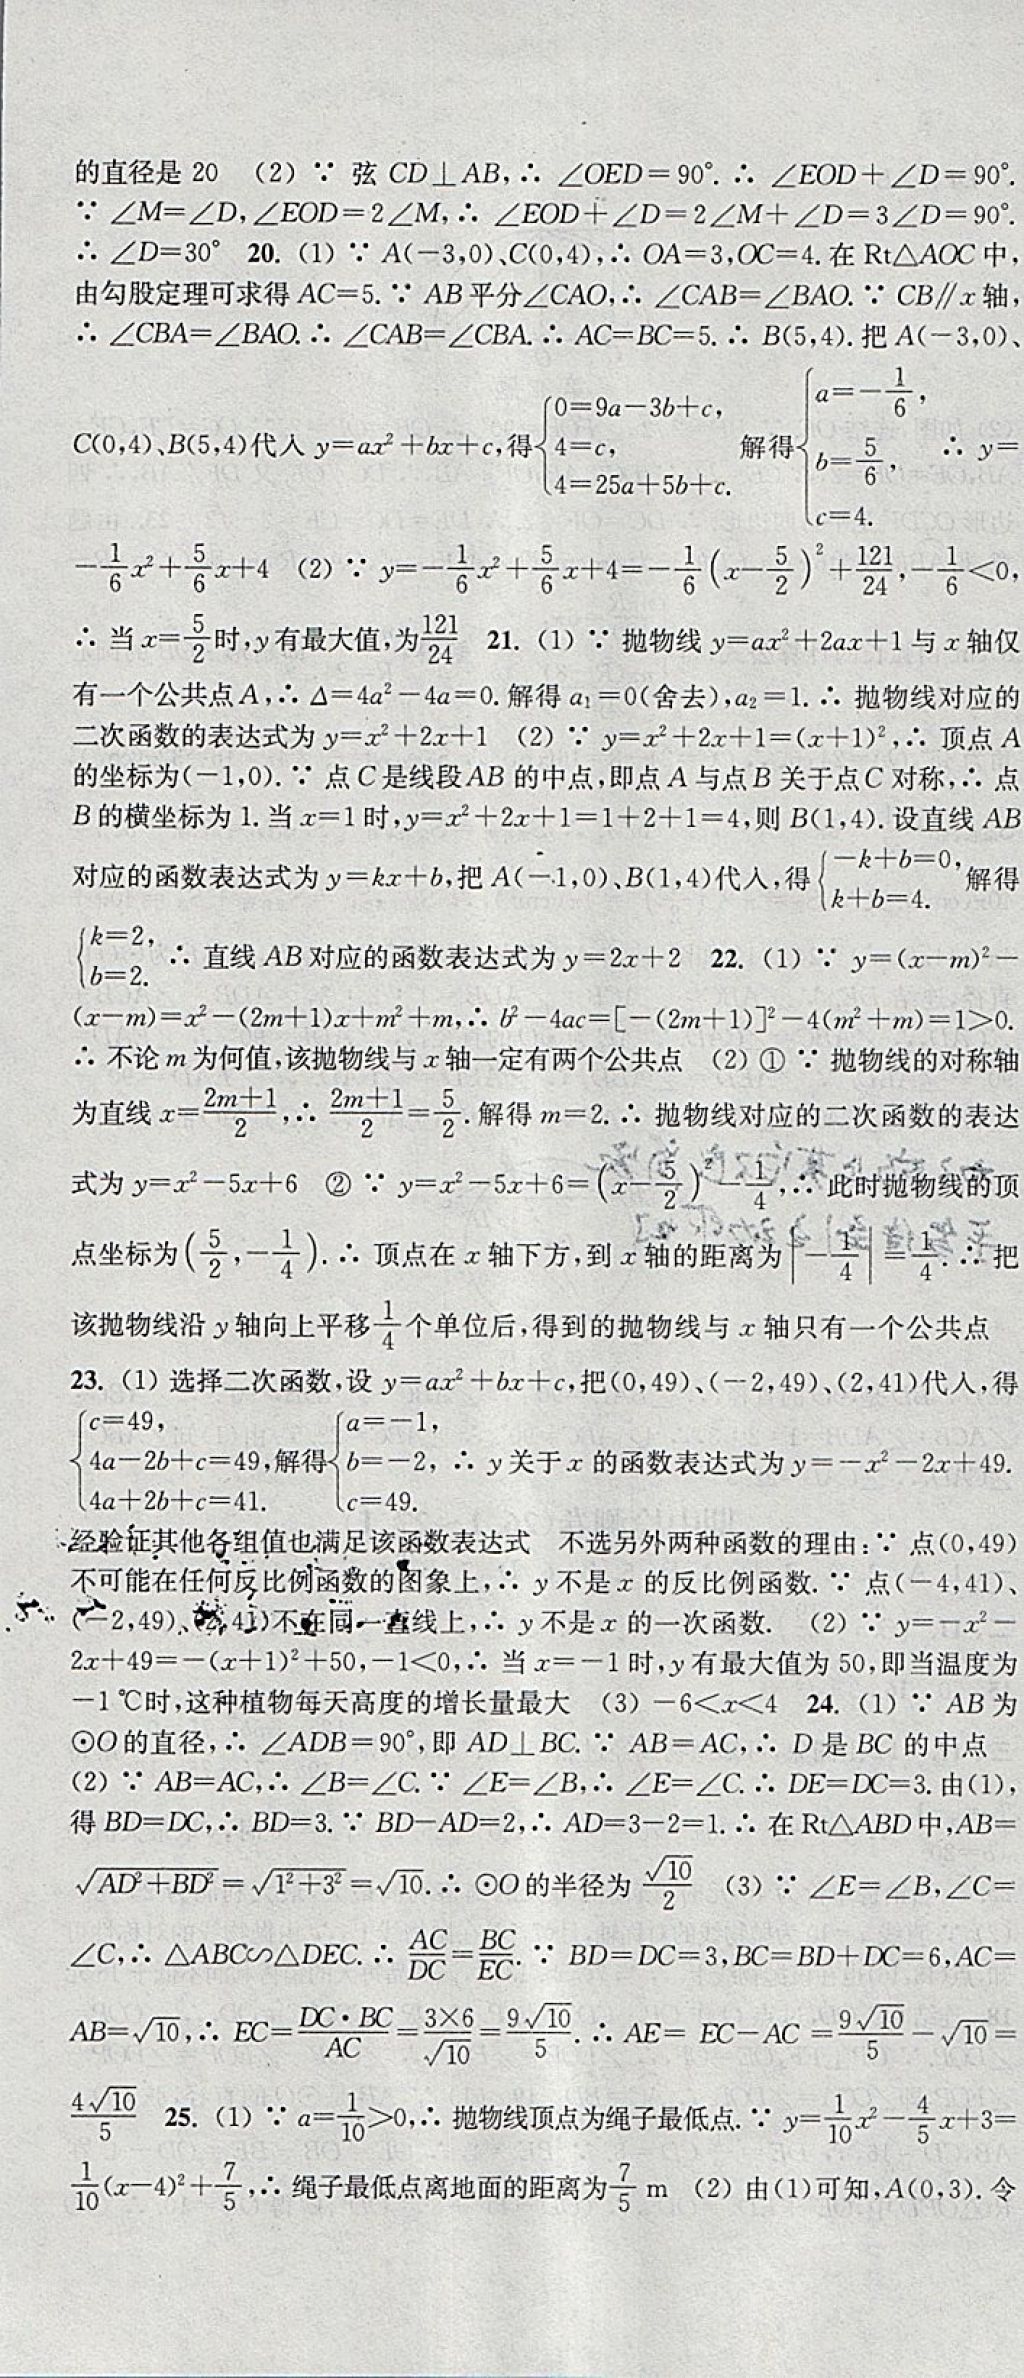 的直径是 20　(2) ∵ 弦 CD⊥AB,∴ ∠OED=90°. ∴ ∠EOD+∠D=90°.
∵ ∠M=∠D,∠EOD=2∠M,∴ ∠EOD+∠D=2∠M+∠D=3∠D=90°.
∴ ∠D=30°　20. (1) ∵ A(-3,0)、C(0,4),∴ OA=3,OC=4. 在 Rt△AOC 中,
由勾股定理可求得 AC=5. ∵ AB 平分∠CAO,∴ ∠CAB=∠BAO. ∵ CB∥x 轴,
∴ ∠CBA=∠BAO. ∴ ∠CAB=∠CBA. ∴ AC=BC=5. ∴ B(5,4). 把 A(-3,0)、
C(0,4)、B(5,4)代入 y=ax²+bx+c,得{0=9a-3b+c, 4=c, 4=25a+5b+c. 解得{a=-1/6, b=5/6, c=4. ∴ y=
-1/6x²+5/6x+4　(2) ∵ y=-1/6x²+5/6x+4=-1/6(x-5/2)²+121/24,-1/6<0,
∴ 当 x=5/2时,y 有最大值,为121/24　21. (1) ∵ 抛物线 y=ax²+2ax+1 与 x 轴仅
有一个公共点 A,∴ Δ=4a²-4a=0. 解得 a₁=0(舍去),a₂=1. ∴ 抛物线对应的
二次函数的表达式为 y=x²+2x+1　(2) ∵ y=x²+2x+1=(x+1)²,∴ 顶点 A
的坐标为(-1,0). ∵ 点 C 是线段 AB 的中点,即点 A 与点 B 关于点 C 对称,∴ 点
B 的横坐标为 1. 当 x=1 时,y=x²+2x+1=1+2+1=4,则 B(1,4). 设直线 AB
对应的函数表达式为 y=kx+b,把 A(-1,0)、B(1,4)代入,得{-k+b=0, k+b=4. 解得
{k=2, b=2. ∴ 直线 AB 对应的函数表达式为 y=2x+2　22. (1) ∵ y=(x-m)²-
(x-m)=x²-(2m+1)x+m²+m,∴ b²-4ac=[-(2m+1)]²-4(m²+m)=1>0.
∴ 不论 m 为何值,该抛物线与 x 轴一定有两个公共点　(2) ① ∵ 抛物线的对称轴
为直线 x=(2m+1)/2,∴ (2m+1)/2=5/2. 解得 m=2. ∴ 抛物线对应的二次函数的表达
式为 y=x²-5x+6　② ∵ y=x²-5x+6=(x-5/2)²-1/4,∴ 此时抛物线的顶
点坐标为(5/2,-1/4). ∴ 顶点在 x 轴下方,到 x 轴的距离为|-1/4|=1/4. ∴ 把
该抛物线沿 y 轴向上平移1/4个单位后,得到的抛物线与 x 轴只有一个公共点
23. (1) 选择二次函数,设 y=ax²+bx+c,把(0,49)、(-2,49)、(2,41)代入,得
{c=49, 4a-2b+c=49, 4a+2b+c=41. 解得{a=-1, b=-2, c=49. ∴ y 关于 x 的函数表达式为 y=-x²-2x+49.
经验证其他各组值也满足该函数表达式　不选另外两种函数的理由:∵ 点(0,49)
不可能在任何反比例函数的图象上,∴ y 不是 x 的反比例函数. ∵ 点(-4,41)、
(-2,49)、(2,41)不在同一直线上,∴ y 不是 x 的一次函数.　(2) ∵ y=-x²-
2x+49=-(x+1)²+50,-1<0,∴ 当 x=-1 时,y 有最大值为 50,即当温度为
-1 ℃时,这种植物每天高度的增长量最大　(3) -6<x<4　24. (1) ∵ AB 为
⊙O 的直径,∴ ∠ADB=90°,即 AD⊥BC. ∵ AB=AC,∴ D 是 BC 的中点
(2) ∵ AB=AC,∴ ∠B=∠C. ∵ ∠E=∠B,∴ ∠E=∠C. ∴ DE=DC=3. 由(1),
得 BD=DC,∴ BD=3. ∵ BD-AD=2,∴ AD=3-2=1. ∴ 在 Rt△ABD 中,AB=
√(AD²+BD²)=√(1²+3²)=√10. ∴ ⊙O 的半径为 √10/2　(3) ∵ ∠E=∠B,∠C=
∠C,∴ △ABC∽△DEC. ∴ AC/DC=BC/EC. ∵ BD=DC=3,BC=BD+DC=6,AC=
AB=√10,∴ EC=DC·BC/AC=3×6/√10=9√10/5. ∴ AE= EC-AC =9√10/5-√10=
4√10/5　25. (1) ∵ a=1/10>0,∴ 抛物线顶点为绳子最低点. ∵ y=1/10x²-4/5x+3=
1/10(x-4)²+7/5,∴ 绳子最低点离地面的距离为7/5 m　(2) 由(1)可知,A(0,3). 令